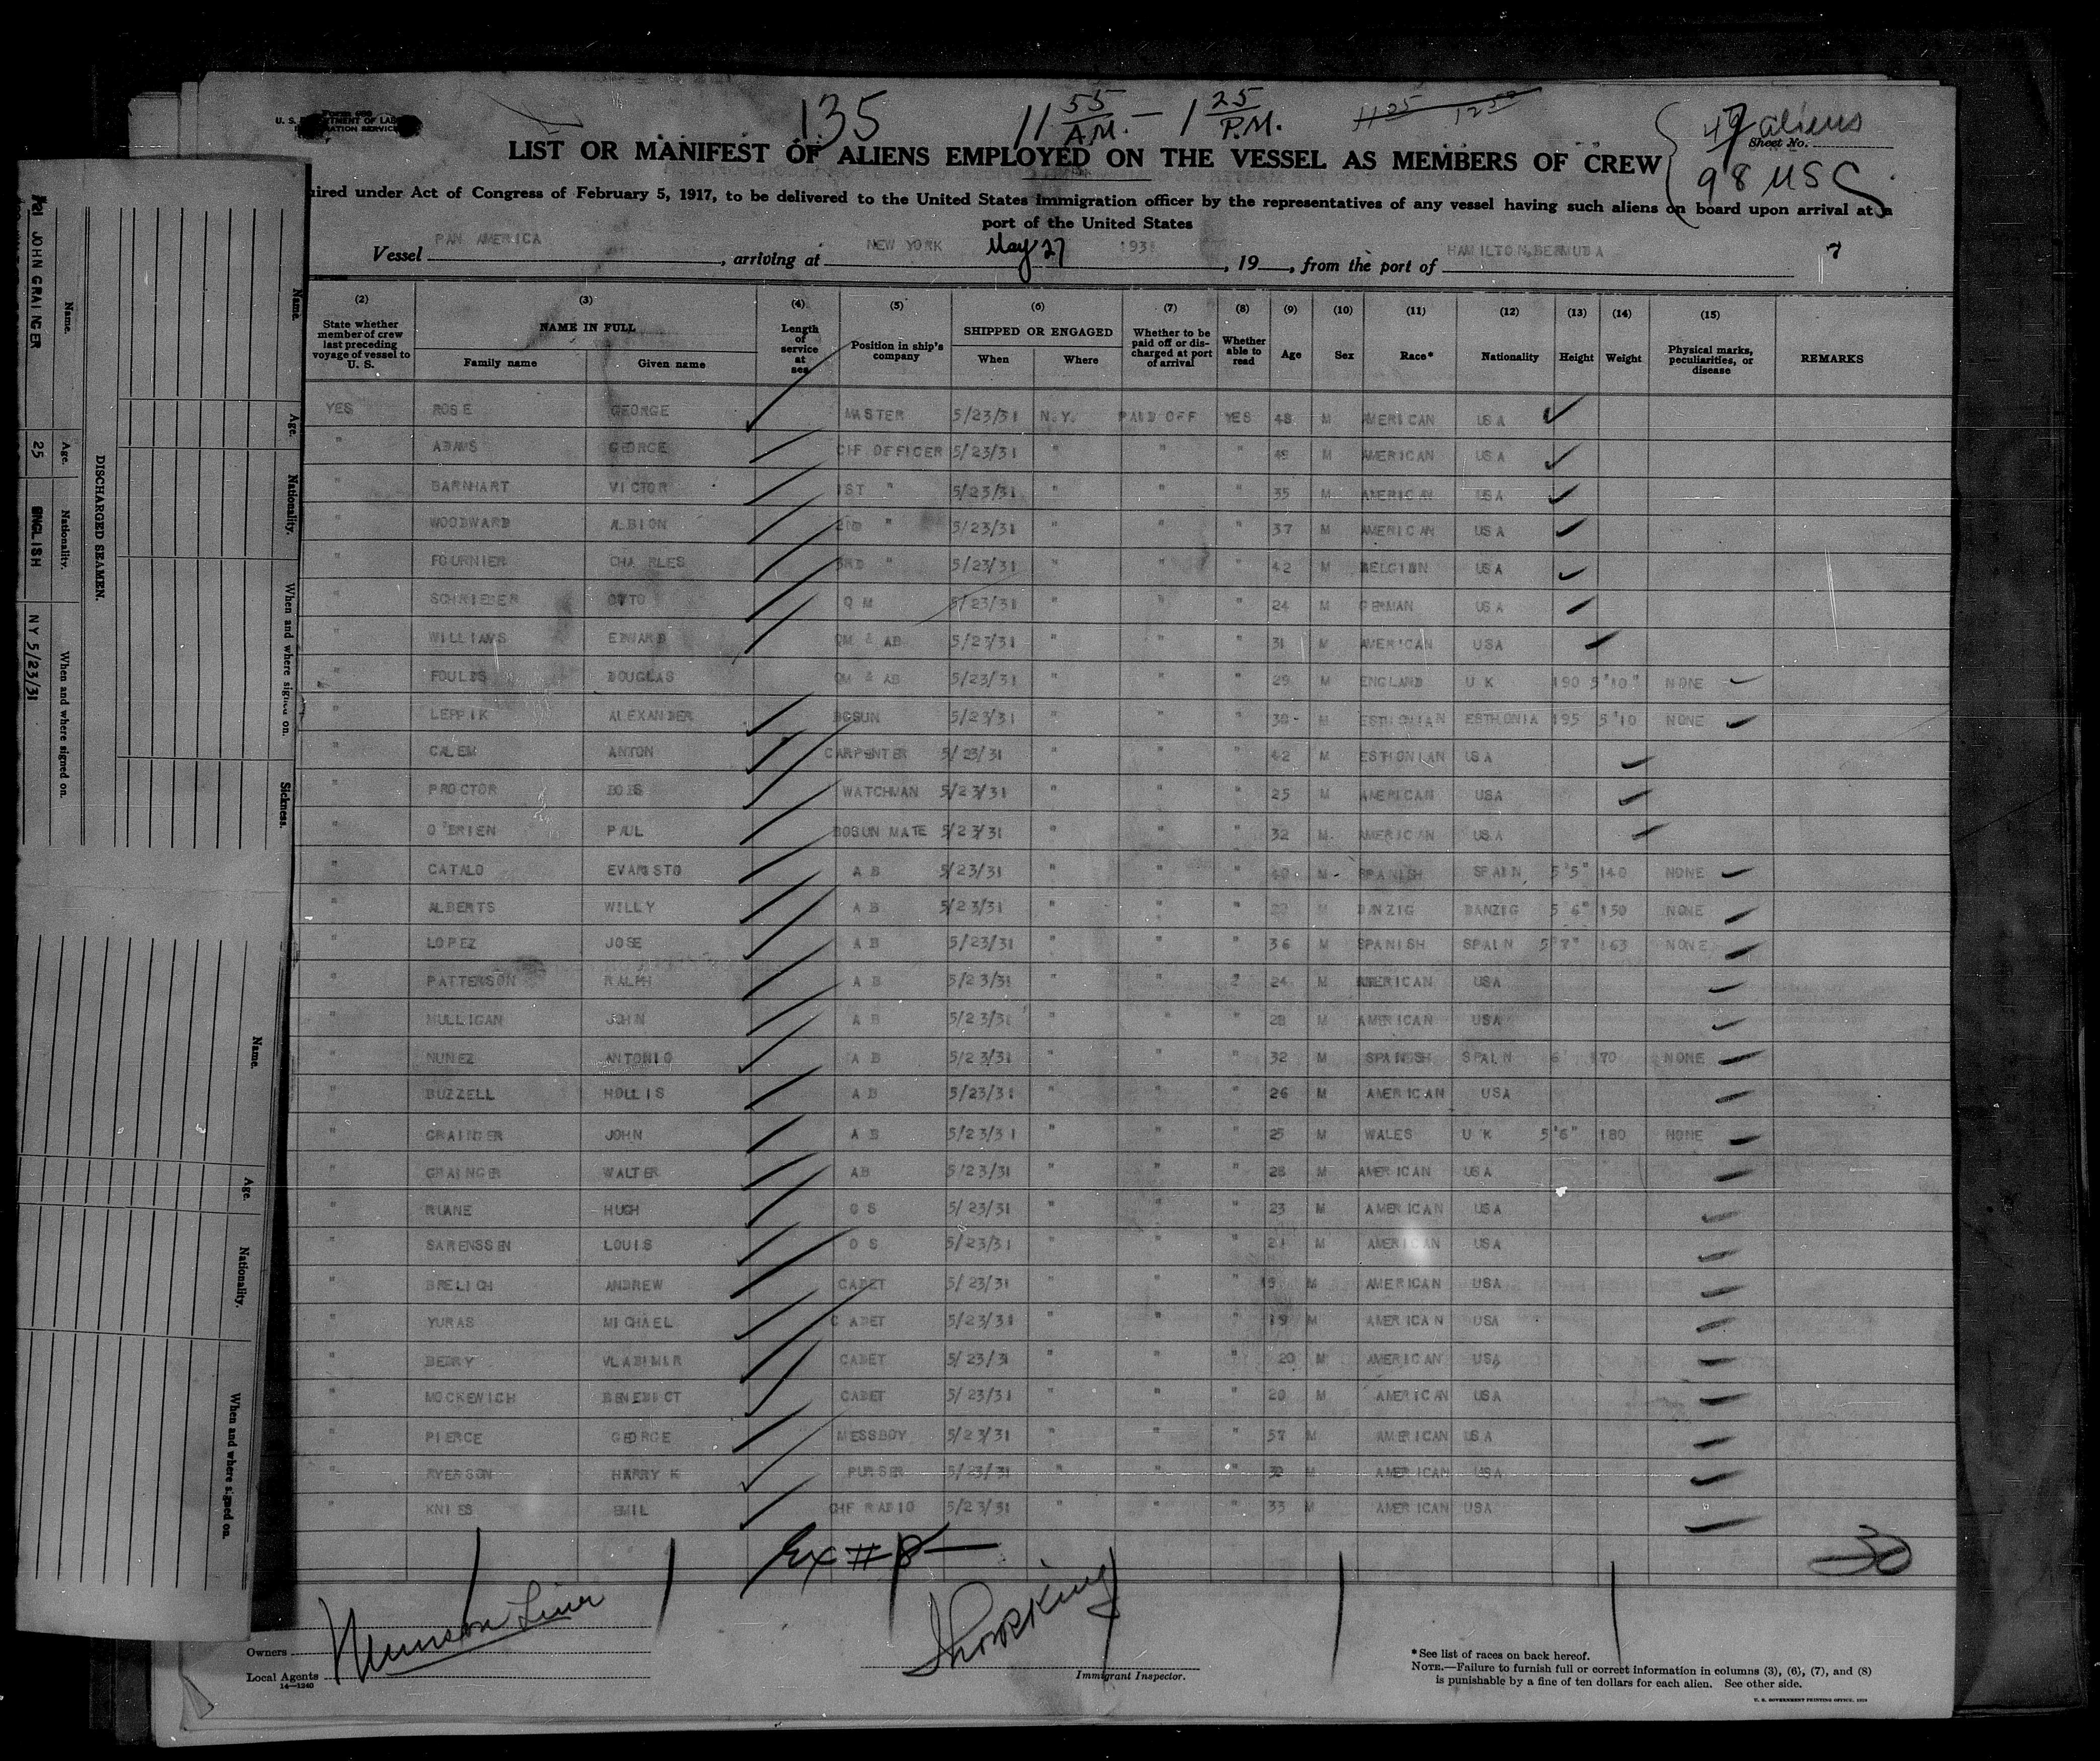 135 11 55 A.M. — 1 25 P.M. 11 25 12 50
47 aliens
98 USC
Form 689
U. S. DEPARTMENT OF LABOR
IMMIGRATION SERVICE
Sheet No.
LIST OR MANIFEST OF ALIENS EMPLOYED ON THE VESSEL AS MEMBERS OF CREW
uired under Act of Congress of February 5, 1917, to be delivered to the United States immigration officer by the representatives of any vessel having such aliens on board upon arrival at a
port of the United States
Vessel PAN AMERICA, arriving at NEW YORK May 27 1931, 19 , from the port of HAMILTON, BERMUDA
(2) (3) (4) (5) (6) (7) (8) (9) (10) (11) (12) (13) (14) (15)
State whether member of crew last preceding voyage of vessel to U. S. NAME IN FULL Family name Given name Length of service at sea Position in ship's company SHIPPED OR ENGAGED When Where Whether to be paid off or discharged at port of arrival Whether able to read Age Sex Race* Nationality Height Weight Physical marks, peculiarities, or disease REMARKS
YES ROSE GEORGE MASTER 5/23/31 N.Y. PAID OFF YES 48 M AMERICAN USA
" ADAMS GEORGE CHF OFFICER 5/23/31 " " " M AMERICAN USA
" BARNHART VICTOR 1ST " 5/23/31 " " " 35 M AMERICAN USA
" WOODWARD ALBION 2ND " 5/23/31 " " " 37 M AMERICAN USA
" FOURNIER CHARLES 3RD " 5/23/31 " " " 42 M BELGIAN USA
" SCHRIEBER OTTO Q M 5/23/31 " " " 24 M GERMAN USA
" WILLIAMS EDWARD QM & AB 5/23/31 " " " 31 M AMERICAN USA
" FOULDS DOUGLAS QM & AB 5/23/31 " " " 29 M ENGLAND U K 190 5'10" NONE
" LEPPIK ALEXANDER BOSUN 5/23/31 " " " 38 M ESTHONIAN ESTHONIA 195 5'10 NONE
" CALEM ANTON CARPENTER 5/23/31 " " " 42 M ESTHONIAN USA
" PROCTOR WATCHMAN 5/23/31 " " " 25 M AMERICAN USA
" O'BRIEN PAUL BOSUN MATE 5/23/31 " " " 32 M AMERICAN USA
" CATALO EVARISTO A B 5/23/31 " " " M SPANISH SPAIN 5'5" 140 NONE
" ALBERTS WILLY A B 5/23/31 " " " M DANZIG DANZIG 5 6" 150 NONE
" LOPEZ JOSE A B 5/23/31 " " " 36 M SPANISH SPAIN 5'7" 163 NONE
" PATTERSON RALPH A B 5/23/31 " " 2 24 M AMERICAN USA
" MULLIGAN JOHN A B 5/23/31 " " " 28 M AMERICAN USA
" NUNEZ ANTONIO A B 5/23/31 " " " 32 M SPANISH SPAIN 6' 170 NONE
" BUZZELL HOLLIS A B 5/23/31 " " " 26 M AMERICAN USA
" GRAINGER JOHN A B 5/23/31 " " " 25 M WALES U K 5'6" 180 NONE
" GRAINGER WALTER AB 5/23/31 " " " 28 M AMERICAN USA
" RUANE HUGH O S 5/23/31 " " " 23 M AMERICAN USA
" SARENSSEN LOUIS O S 5/23/31 " " " M AMERICAN USA
" BRELICH ANDREW CADET 5/23/31 " " " M AMERICAN USA
" YURAS MICHAEL CADET 5/23/31 " " " 19 M AMERICAN USA
" BERRY VLADIMIR CADET 5/23/31 " " " 20 M AMERICAN USA
" MOCKEWICH BENEDICT CADET 5/23/31 " " " 20 M AMERICAN USA
" PIERCE GEORGE MESSBOY 5/23/31 " " " 57 M AMERICAN USA
" RYERSON HARRY K PURSER 5/23/31 " " " M AMERICAN USA
" KNIES EMIL CHF RADIO 5/23/31 " " " 33 M AMERICAN USA
Ex # 8
30
Munson Line
Owners
Local Agents
14—1240
Immigrant Inspector.
*See list of races on back hereof.
NOTE.—Failure to furnish full or correct information in columns (3), (6), (7), and (8)
is punishable by a fine of ten dollars for each alien. See other side.
U. S. GOVERNMENT PRINTING OFFICE
DISCHARGED SEAMEN.
Name. Age. Nationality. When and where signed on.
JOHN GRAINGER 25 ENGLISH NY 5/23/31
Name. Age. Nationality. When and where signed on. Sickness.
Name. Age. Nationality. When and where signed on.